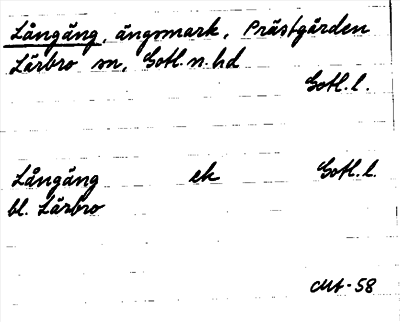 Långäng, ängsmark, Prästgården
Lärbro sn, Gotl. n. hd
Gotl. l.
Långäng ek Gotl. l.
bl. Lärbro
-58